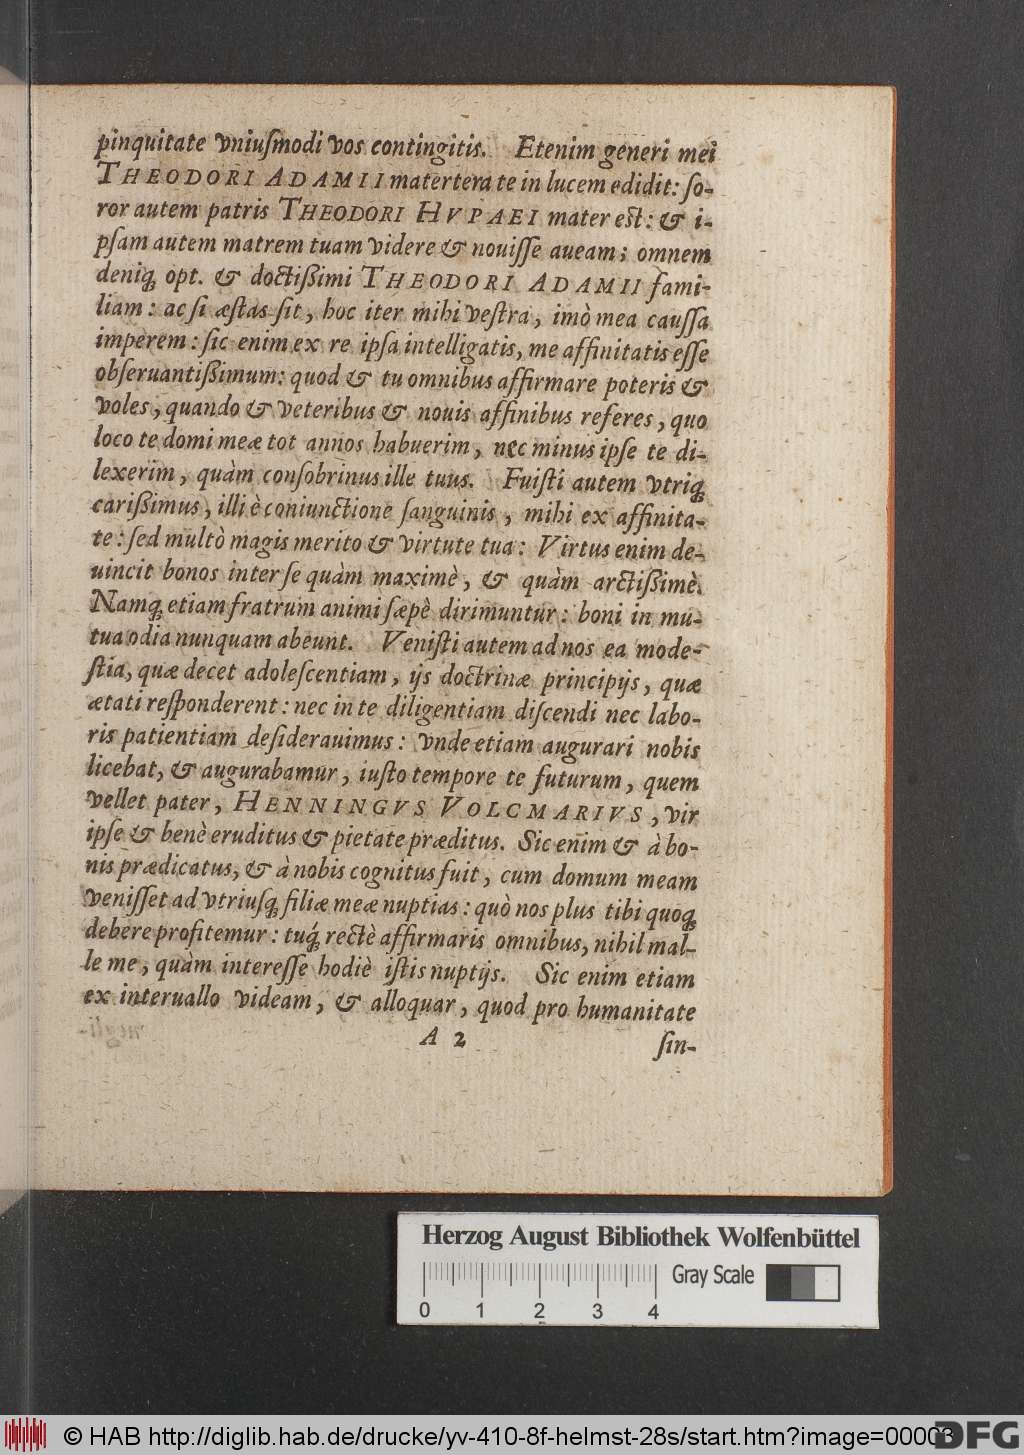 pinquitate vniuſmodi vos contingitis. Etenim generi mei
THEODORI ADAMII matertera te in lucem edidit: ſo-
ror autem patris THEODORI HVPAEI mater eſt: & i-
pſam autem matrem tuam videre & nouiſſe aueam; omnem
deniq́; opt. & doctißimi THEODORI ADAMII fami-
liam: ac ſi æſtas ſit, hoc iter mihi veſtra, imò mea cauſſa
imperem: ſic enim ex re ipſa intelligatis, me affinitatis eſſe
obſeruantißimum: quod & tu omnibus affirmare poteris &
voles, quando & veteribus & nouis affinibus referes, quo
loco te domi meæ tot annos habuerim, nec minus ipſe te di-
lexerim, quàm conſobrinus ille tuus. Fuiſti autem vtriq;
carißimus, illi è coniunctione ſanguinis, mihi ex affinita-
te: ſed multò magis merito & virtute tua: Virtus enim de-
uincit bonos inter ſe quàm maximè, & quàm arctißimè.
Namq; etiam fratrum animi ſæpè dirimuntur: boni in mu-
tua odia nunquam abeunt. Veniſti autem ad nos ea mode-
ſtia, quæ decet adoleſcentiam, ijs doctrinæ principijs, quæ
ætati reſponderent: nec in te diligentiam diſcendi nec labo-
ris patientiam deſiderauimus: vnde etiam augurari nobis
licebat, & augurabamur, iuſto tempore te futurum, quem
vellet pater, HENNINGVS VOLCMARIVS, vir
ipſe & benè eruditus & pietate præditus. Sic enim & à bo-
nis prædicatus, & à nobis cognitus fuit, cum domum meam
veniſſet ad vtriuſq; filiæ meæ nuptias: quò nos plus tibi quoq;
debere profitemur: tuq́; rectè affirmaris omnibus, nihil mal-
le me, quàm intereſſe hodiè iſtis nuptijs. Sic enim etiam
ex interuallo videam, & alloquar, quod pro humanitate
A 2 ſin-
Herzog August Bibliothek Wolfenbüttel
Gray Scale
0 1 2 3 4
© HAB http://diglib.hab.de/drucke/yv-410-8f-helmst-28s/start.htm?image=00003
DFG